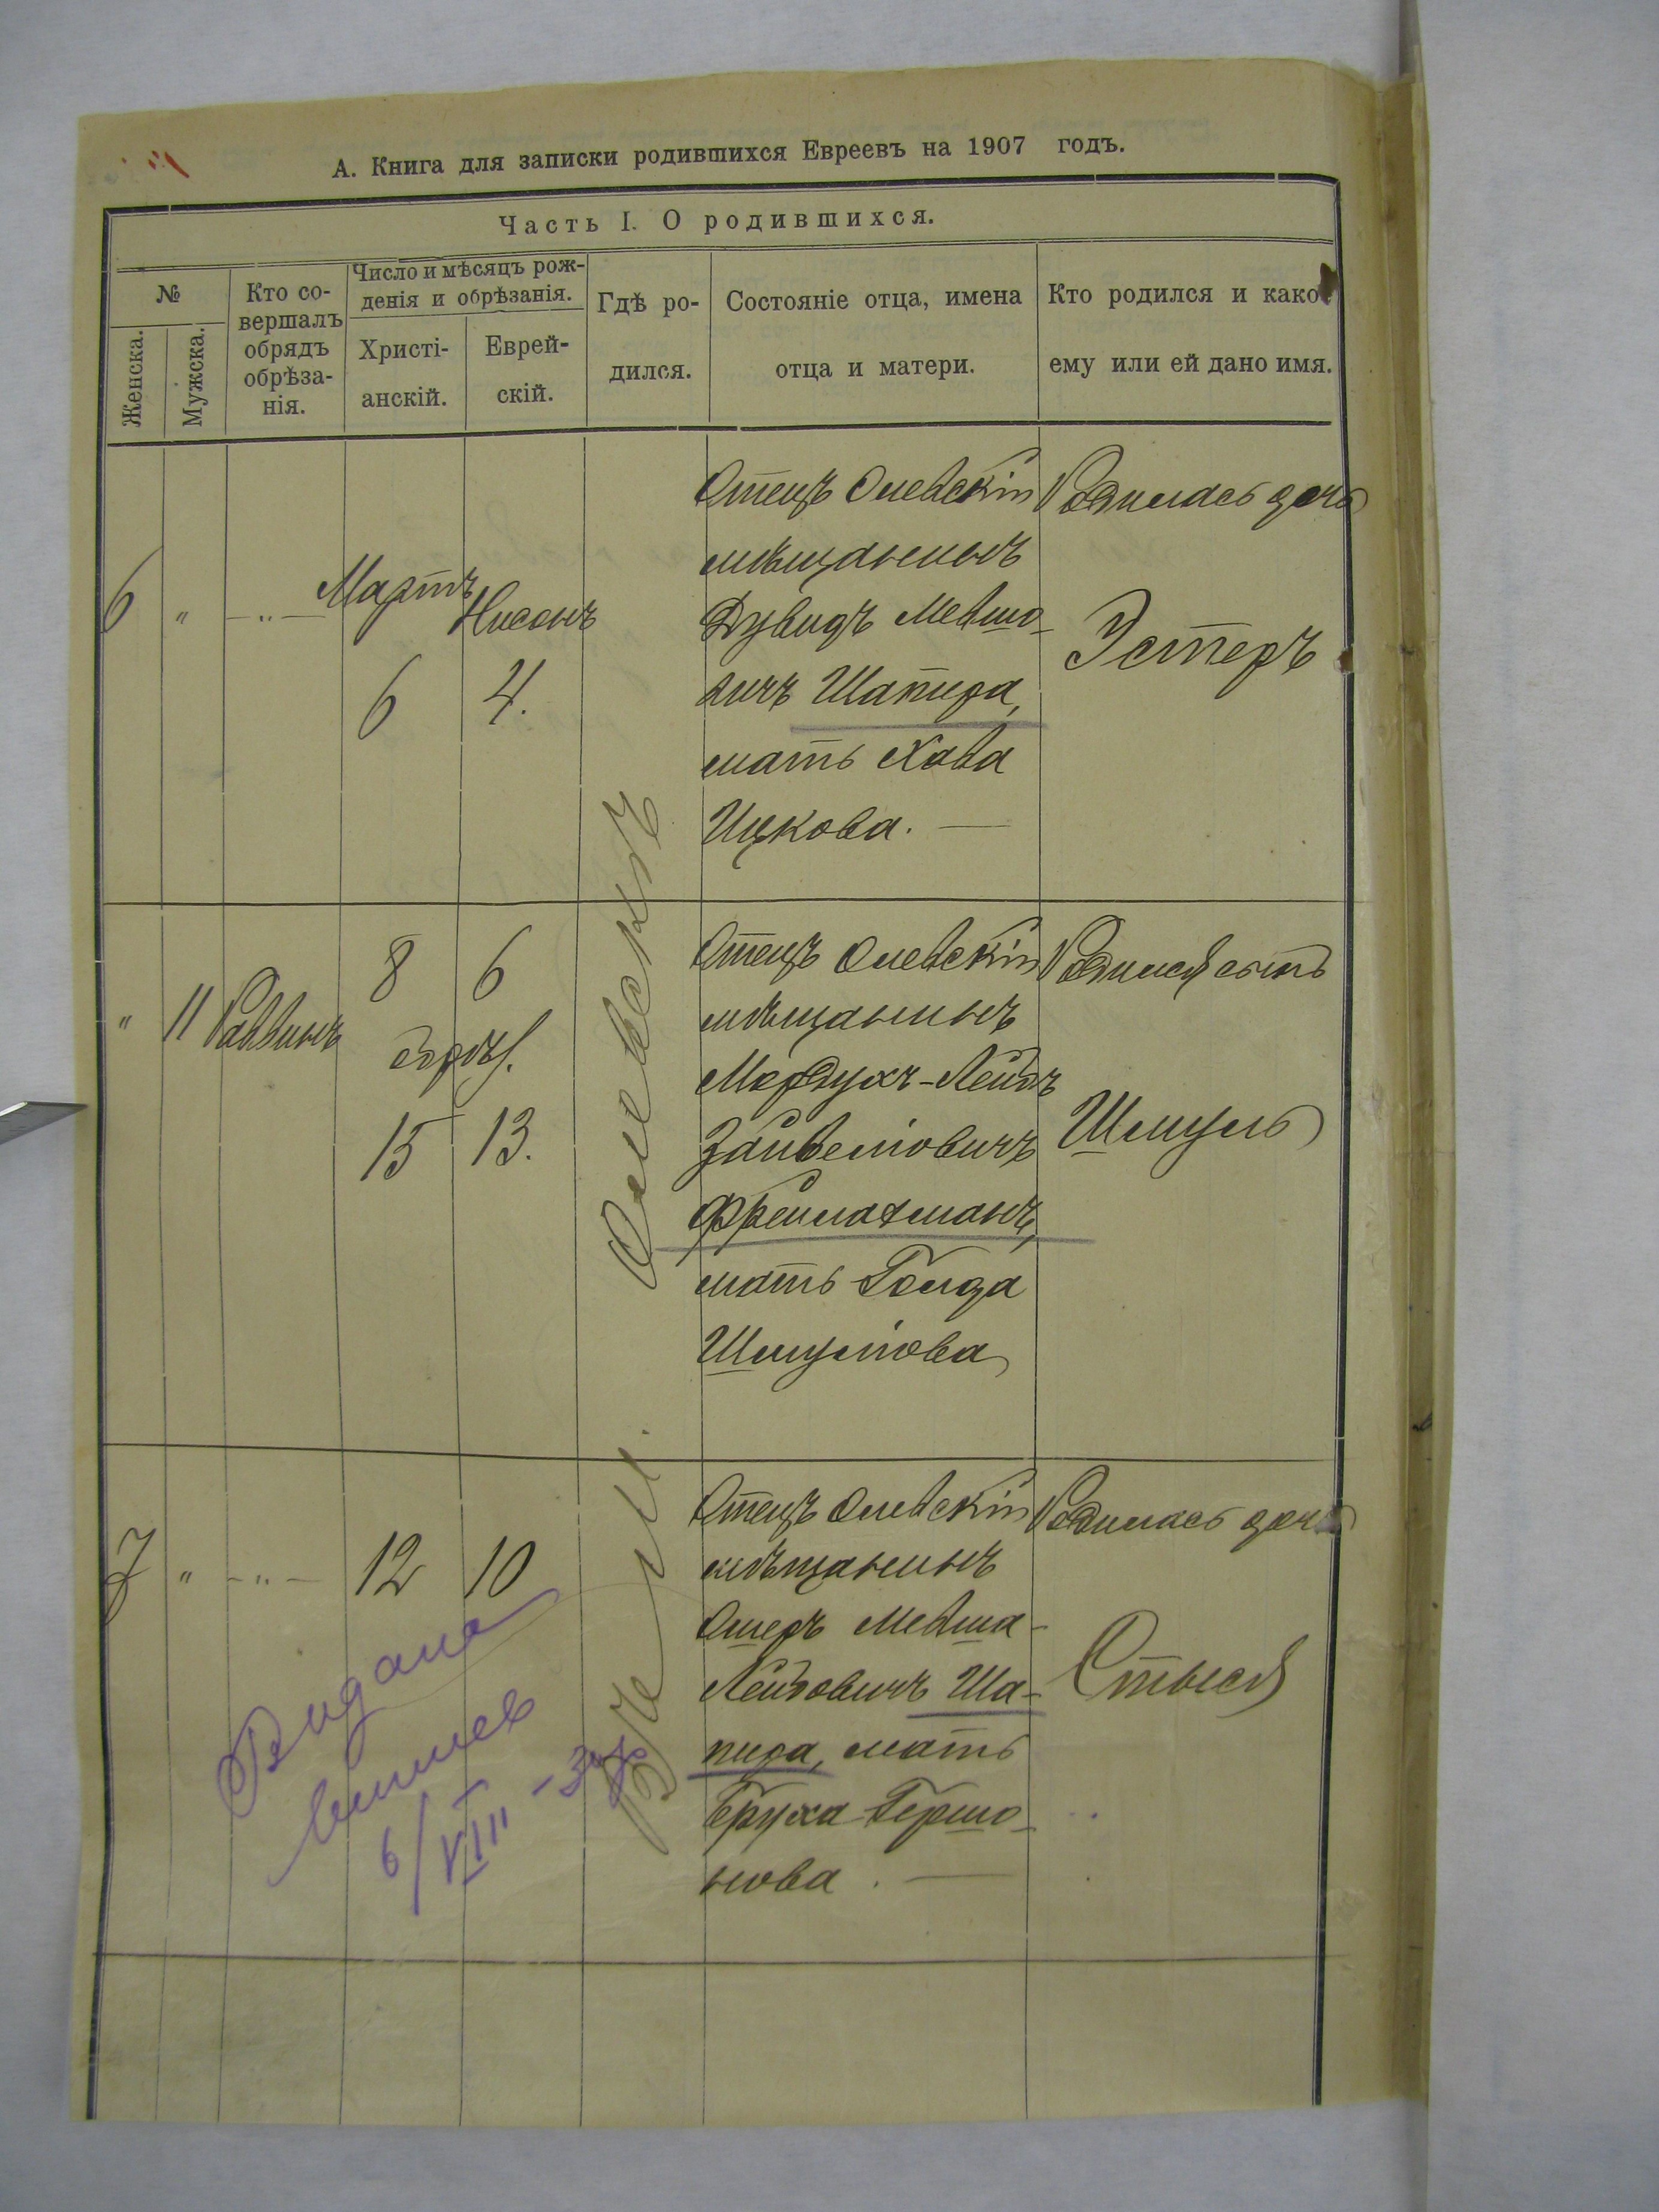 А. Книга для записки родившихся Евреевъ на 1907 годъ.
Часть I. О родившихся.
№
Женска.
Мужска.
Кто со-
вершалъ
обрядъ
обрѣза-
нія.
Число и мѣсяцъ рож-
денія и обрѣзанія.
Христі-
анскій.
Еврей-
скій.
Гдѣ ро-
дился.
Состояніе отца, имена
отца и матери.
Кто родился и како
ему или ей дано имя.
6 " — " — Мартъ 6 Нисонъ 4.
Отецъ Олевскій
мѣщанинъ
Дувидъ Мевшо-
вичъ Шапира,
мать Хава
Ицкова. —
Родилась дочь
Эстеръ
" 11 Раввинъ
8 6
15 13.
Отецъ Олевскій
мѣщанинъ
Мордухъ-Лейбъ
Зайвеліовичъ
Фрейлахманъ,
мать Голда
Шмуліова
Родился сынъ
Шмуль
7 " — " — 12 10
Отецъ Олевскій
мѣщанинъ
Ошеръ Мевша-
Лейбовичъ Ша-
пира, мать
Бруха Гершо-
нова. —
Родилась дочь
Стыся
Видана
6/VIII